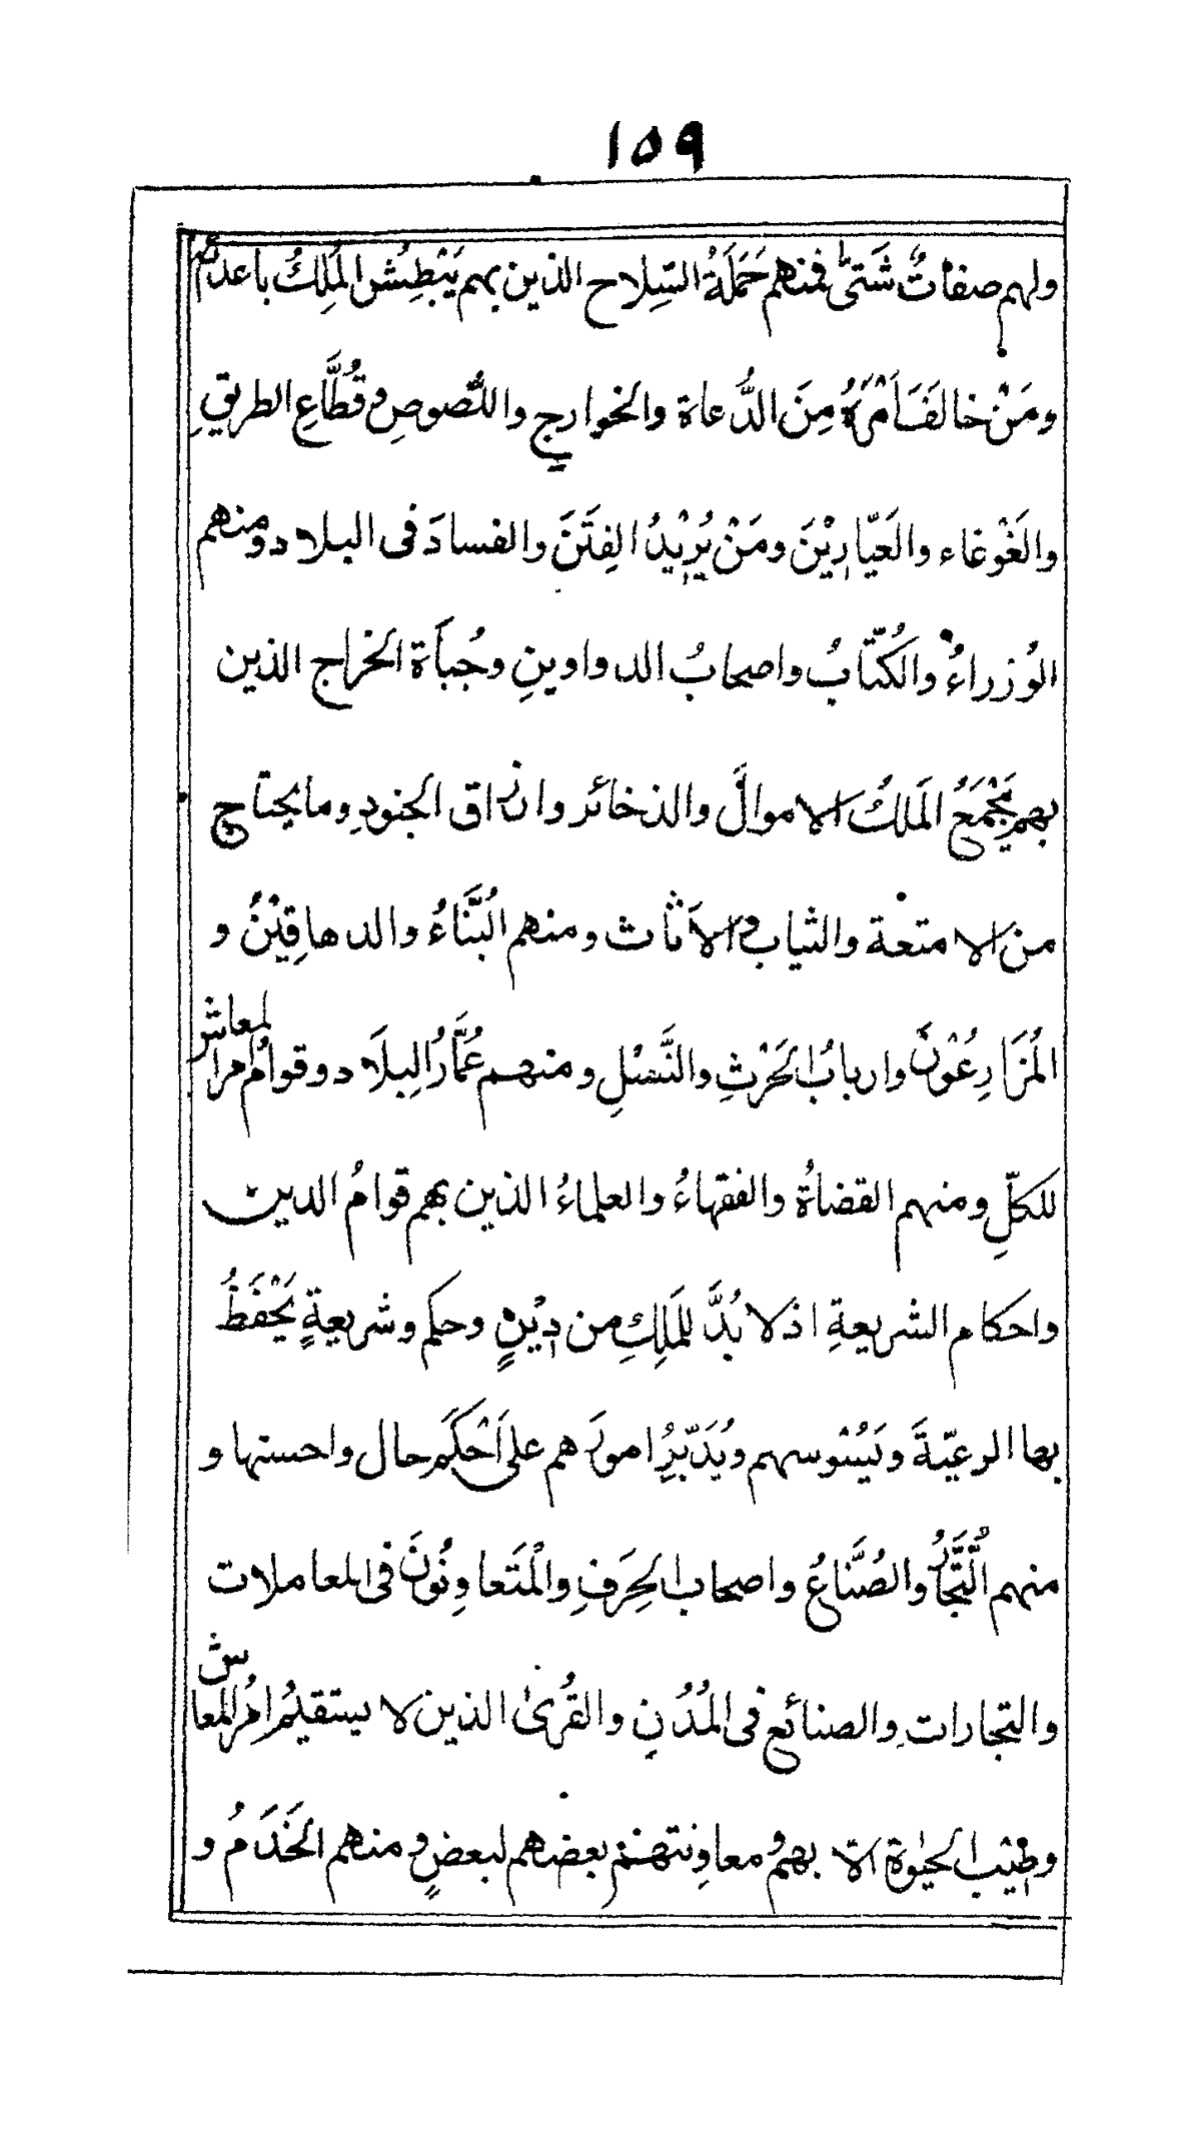 ١٥٩
ولهم صفاتٌ شَتىّٰ فمنهم حَمَلَةُ السِّلاح الذين بهم يَبْطِشُ المَلِكُ باعدائهم
ومَنْ خالَفَ اَمْرَهُ مِنَ الدُّعاة والخوارجِ واللُّصوصِ وقُطَّاعِ الطريقِ
والغَوْغاء والعَيّارِيْنَ ومَنْ يُرِيْدُ الفِتَنَ والفسادَ فى البلاد ومنهم
الوُزراءُ والكُتّابُ واصحابُ الدواوينِ وجُباَةُ الخراج الذين
بهم يَجْمَعُ المَلكُ الاموالَ والذخائر وارزاق الجنودِ وما يحتاج
من الامتعة والثياب والاَثاث ومنهم البُنَّاءُ والدهاقِيْنُ و
المُزَارِعُوْنَ واربابُ الحَرْثِ والنَّسْلِ ومنهم عُمَّارُ البِلَاد وقوامُ امر المعاش
للكلِّ ومنهم القضاةُ والفقهاءُ والعلماءُ الذين بهم قوامُ الدين
واحكام الشريعةِ اذ لا بُدَّ للمَلِكِ من دِيْنٍ وحكم وشريعةٍ يَحْفَظُ
بها الرعيّةَ ويَسُوْسهم ويُدَبّرُ امورَهم على اَحْكَمِ حال واحسنها و
منهم التُّجَّارُ والصُنَّاعُ واصحاب الحِرَفِ والْمُتَعاوِنُونَ فى المعاملات
والتجارات والصنائع فى المُدُنِ والقُرىٰ الذين لا يستقيمُ امرُ المعاش
وطِيْب الحيٰوة الّا بهم ومعاونتهم بعضهم لبعضٍ ومنهم الخَدَمُ و